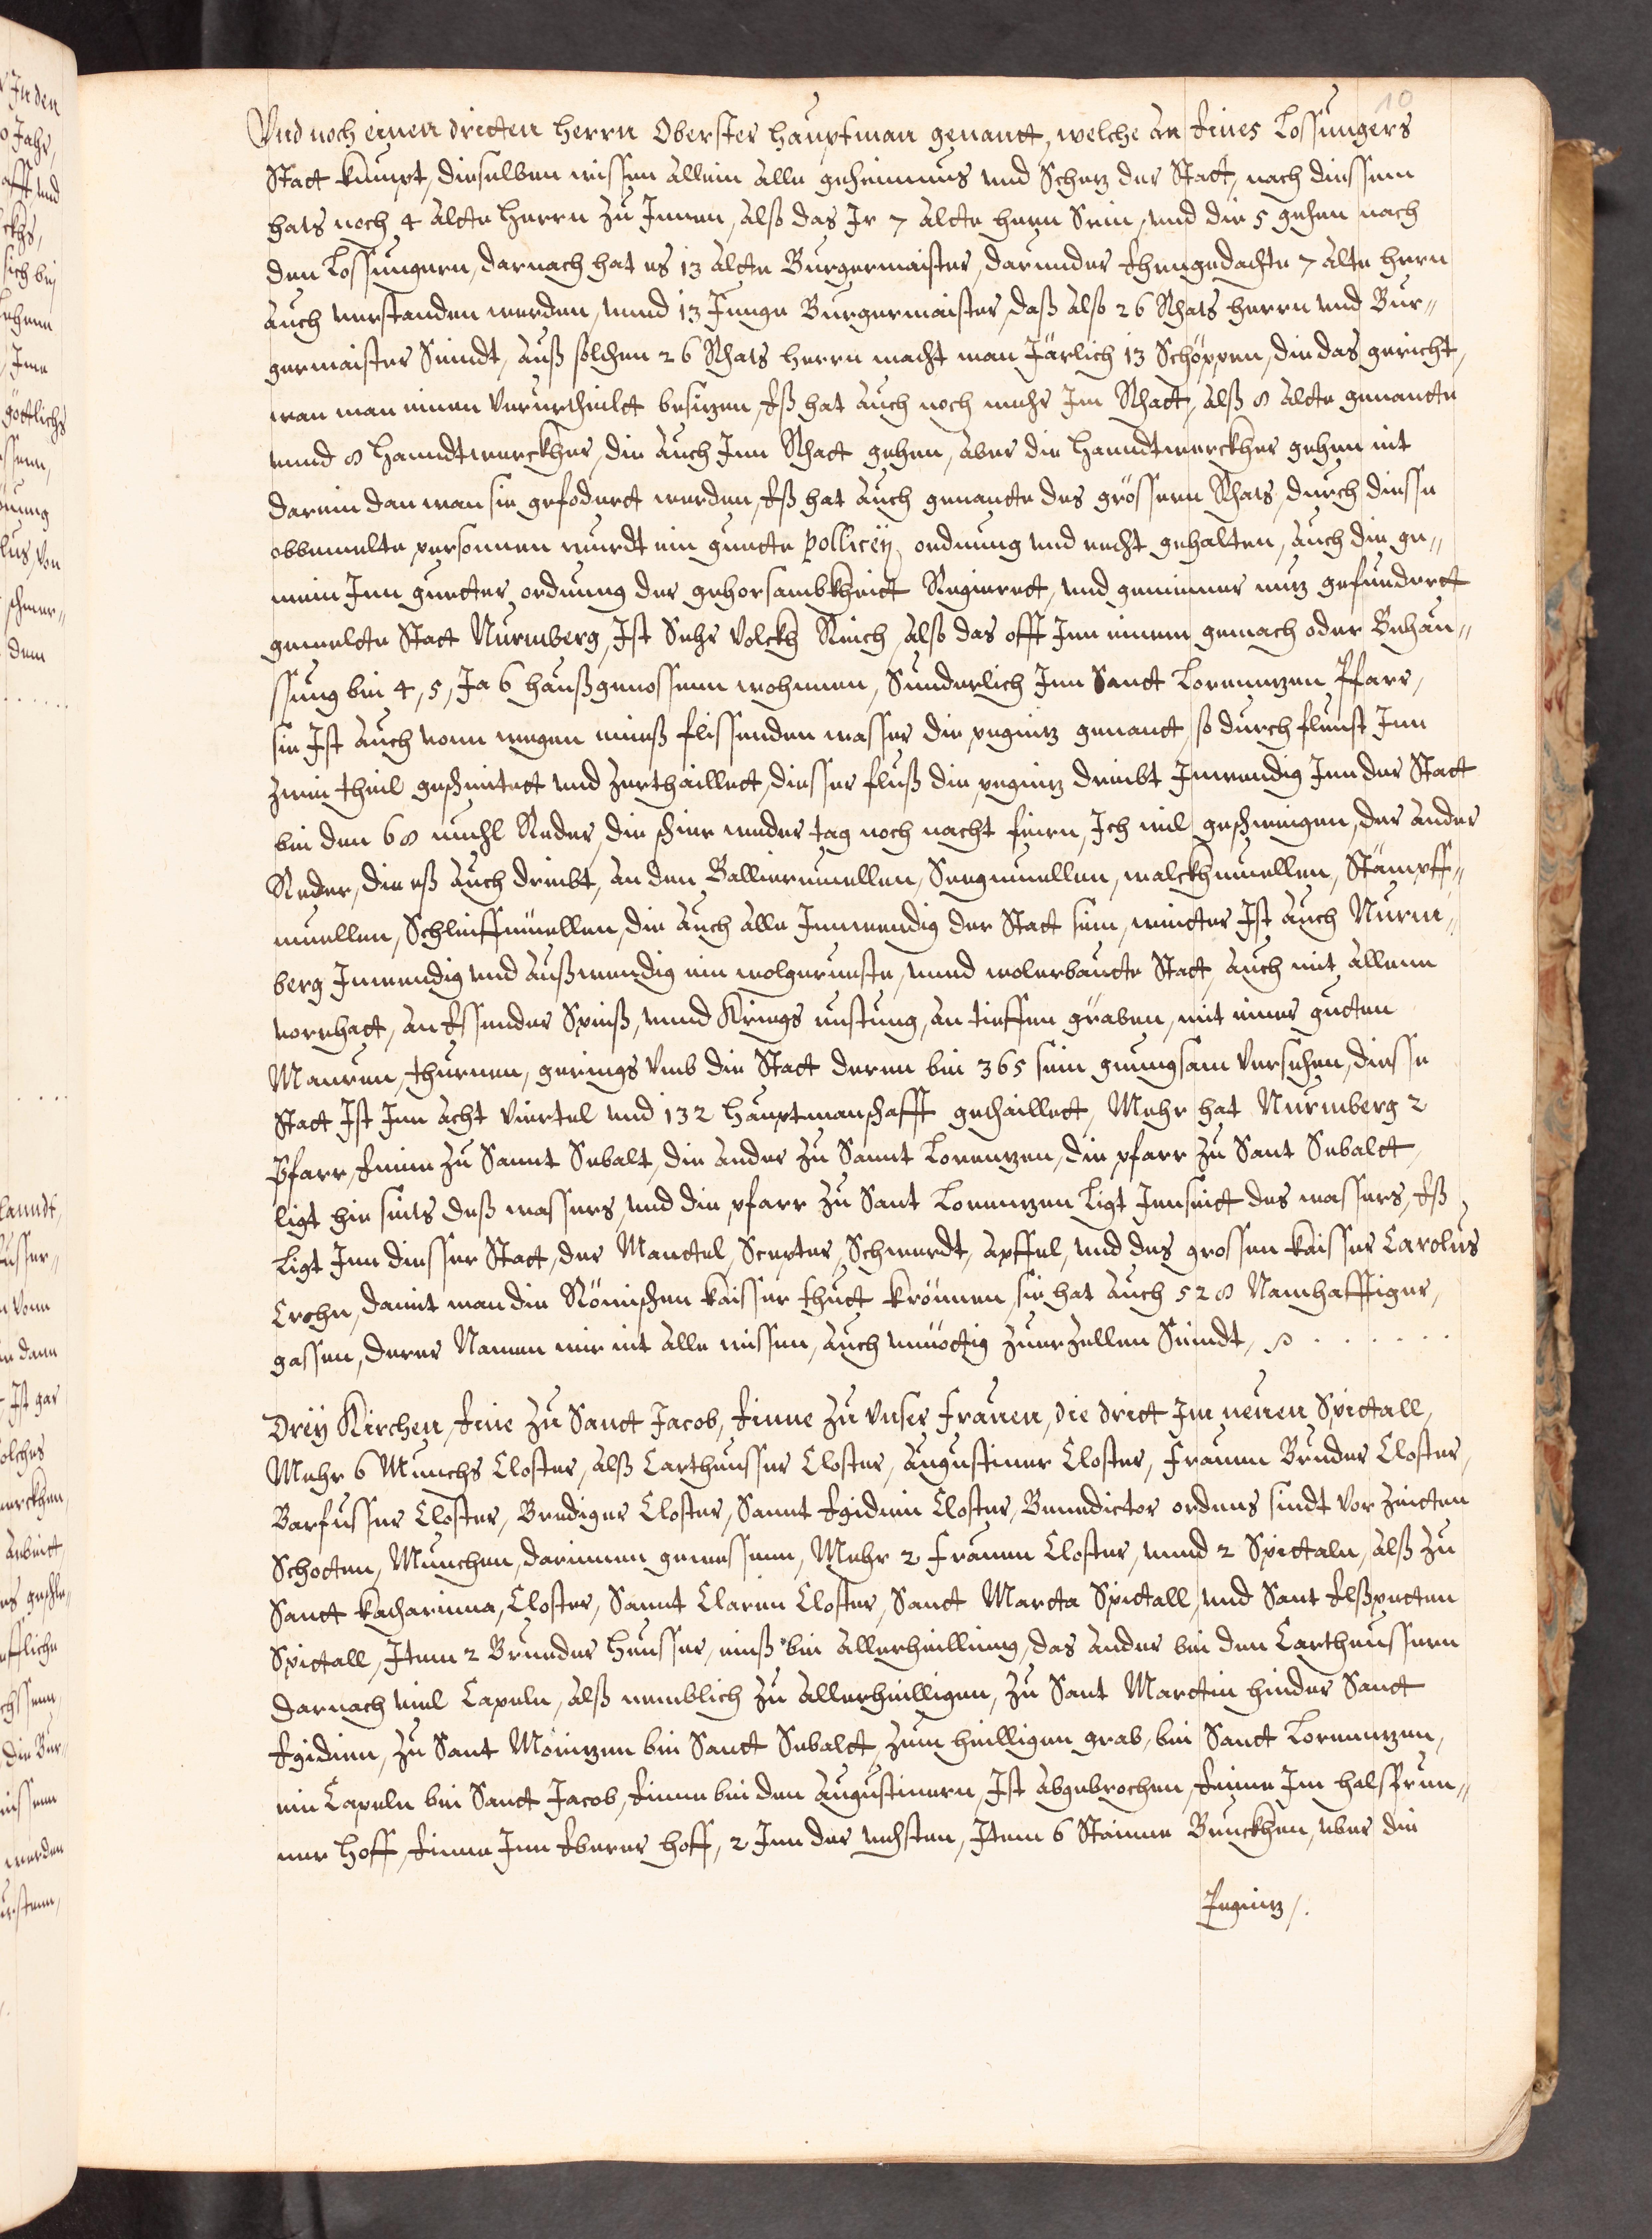 10
Vnd noch einen dritten herrn Oberster haubtman genantt, welche an Eines Lossungers
Statt kumpt, dieselben wissen allein alle geheimnus vnd Schez der Statt, nach diessem
hats noch 4 altte herrn zu Innen, also das Ir 7 altte hern Sein, vnd die 5 gehen nach
den Lossungern, darnach hat es 13 altte Burgermaister, darunder Ehengedachte 7 alte herrn
auch verstanden werden, vnnd 13 Junge Burgermaister, daß also 26 Rhats herrn vnd Bur„
germaister Seindt, auß solchen 26 Rhats herrn macht man Järlich 13 Schöppen, die das gericht,
wan man einen Verurtheilt besizen, Eß hat auch noch mehr Im Rhatt, alß 8 altte genantte
vnnd 8 Hanndtwerckher, die auch Inn Rhatt gehen, aber die Hanndtwerckher gehen nit
darein dan wan sie gefodertt werden, Eß hat auch genantte des grössern Rhats, durch diesse
obbemelte personnen wurdt ein guette pollicey, ordnung vnd recht gehalten, auch die ge„
mein Inn guetter ordnung der gehorsambkheitt Regierett, vnd gemeiner nuz gefundertt
gemeldte Statt Nurmberg, Ist Sehr Volckh Reich, also das offt Inn einem gemach oder Behau„
ssung bei 4, 5, Ja 6 haußgenossenn wohnnen, Sunderlich Inn Sanct Lorennzen Pfarr,
sie Ist auch vonn wegen eineß flissenden wasser die pegniz genantt, so durch fleust Inn
zwei theil gescheitett vnd zerthaillett, diesser fluß die pegniz dreibt Inwendig Inn der Statt
bei den 68 muhl Reder, die schier weder tag noch nacht feirn, Ich wil geschweigen, der ander
Reder, die eß auch dreibt, an den Balliermuellen, Segmuellen, walckhmuellen, Stämpff„
muellen, Schleiffmüellen, die auch alle Innwendig der Statt sein, weitter Ist auch Nurm„
berg Inwendig vnd außwendig ein wolgeruste, vnnd wolerbautte Statt, auch mit allenn
vorrhatt, an Essender Speiß, vnnd Kriegs rustung, an tieffen gräben, mit einer gutten
Mauren, thurnen, gerings vmb die Statt deren bei 365 sein gnungsam versehen, diesse
Statt Ist Inn acht Viertel vnd 132 Hauptmanschafft gethaillett, Mehr hat Nurmberg 2
Pfarr, Eeine zu Sannt Sebalt, die ander zu Sannt Lorenzen, die pfarr zu Sant Sebaltt,
ligt hie seits deß wassers, vnd die pfarr zu Sant Lorennzen Ligt Jenseitt des wassers, Eß
Ligt Inn diesser Statt, der Manttel, Scepter, Schwerdt, apffel, vnd des grossen Kaisser Carolus
Crohn, damit man die Römischen Kaisser thutt krönnen, sie hat auch 528 Namhafftiger,
gassen, derer Namen mir nit alle wissen, auch vnnöttig zuerzellen Seindt, . . . . . . .
Drey Kirchen, Eine zu Sanct Jacob, Einne zu Vnser Frauen, die dritt Im neuen Spittall,
Mehr 6 Munchs Closter, alß Cartheusser Closter, Augustiner Closter, Frauen Bruder Closter,
Barfusser Closter, Brediger Closter, Sannt Egidien Closter, Benedictor ordens sindt vor Zeitten
Schotten, Munchen, darinnen gewessenn, Mehr 2 Frauen Closter, vnnd 2 Spittaln, alß zu
Sanct Katharinna, Closter, Sannt Claren Closter, Sanct Martta Spittall, vnd Sant Elßpetten
Spittall, Item 2 Brueder Heusser, einß bei allerheilling, das ander bei den Cartheussern
darnach viel Capeln, alß nemblich zu allerheilligen, zu Sant Marttin hinder Sanct
Egidien, zu Sant Möritzen bei Sanct Sebaltt, zum heilligen grab, bei Sanct Lorennzen,
ein Capeln bei Sanct Jacob, Einne bei den Augustinern, Ist abgebrochen, Einne Im halsprun„
ner Hoff, Einne Inn Eberer hoff, 2 Inn der vehsten, Item 6 Stainne Bruckhen, vber die
Pegniz /.